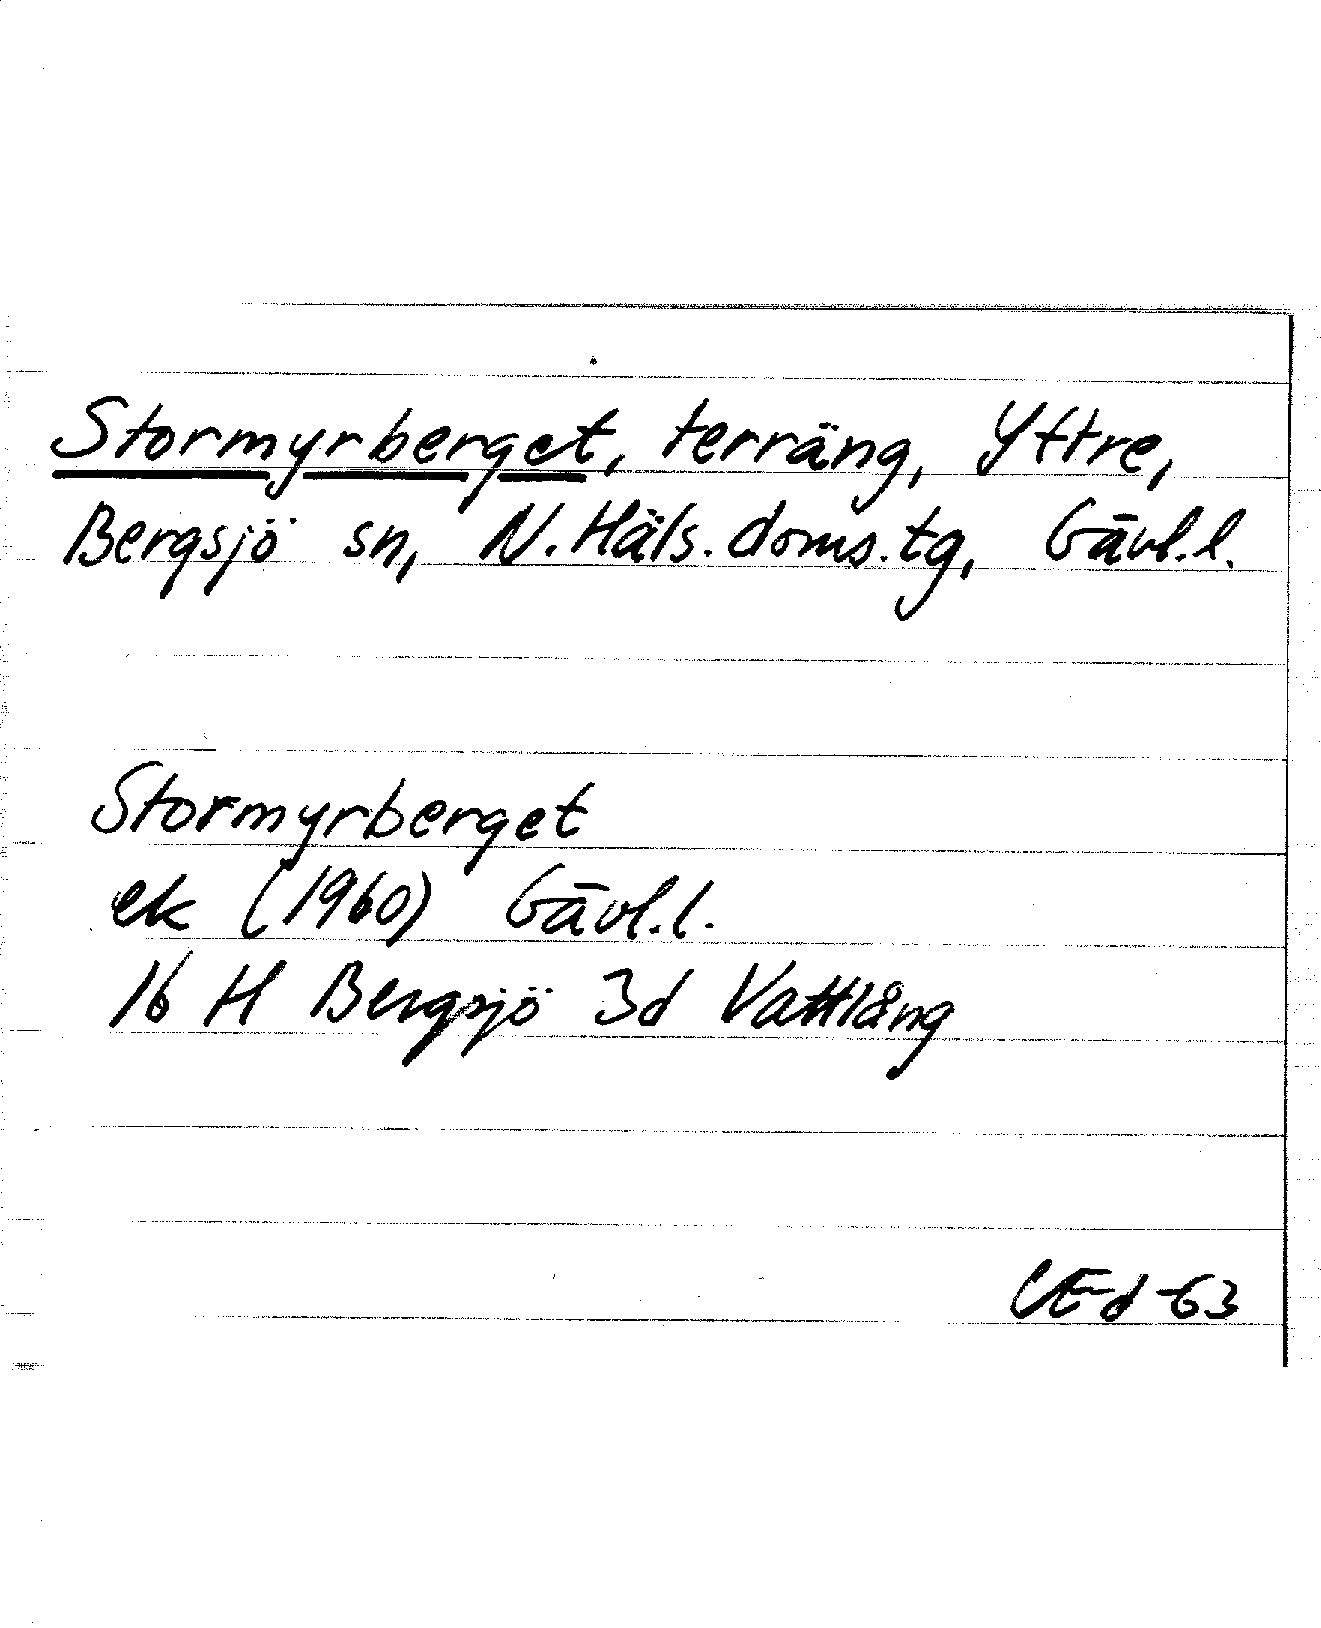 Stormyrberget, terräng, Yttre,
Bergsjö sn, N. Häls. doms. tg, Gävl. l.
Stormyrberget
ek (1960) Gävl. l.
16 H Bergsjö 3d Vattlång
CEd -63